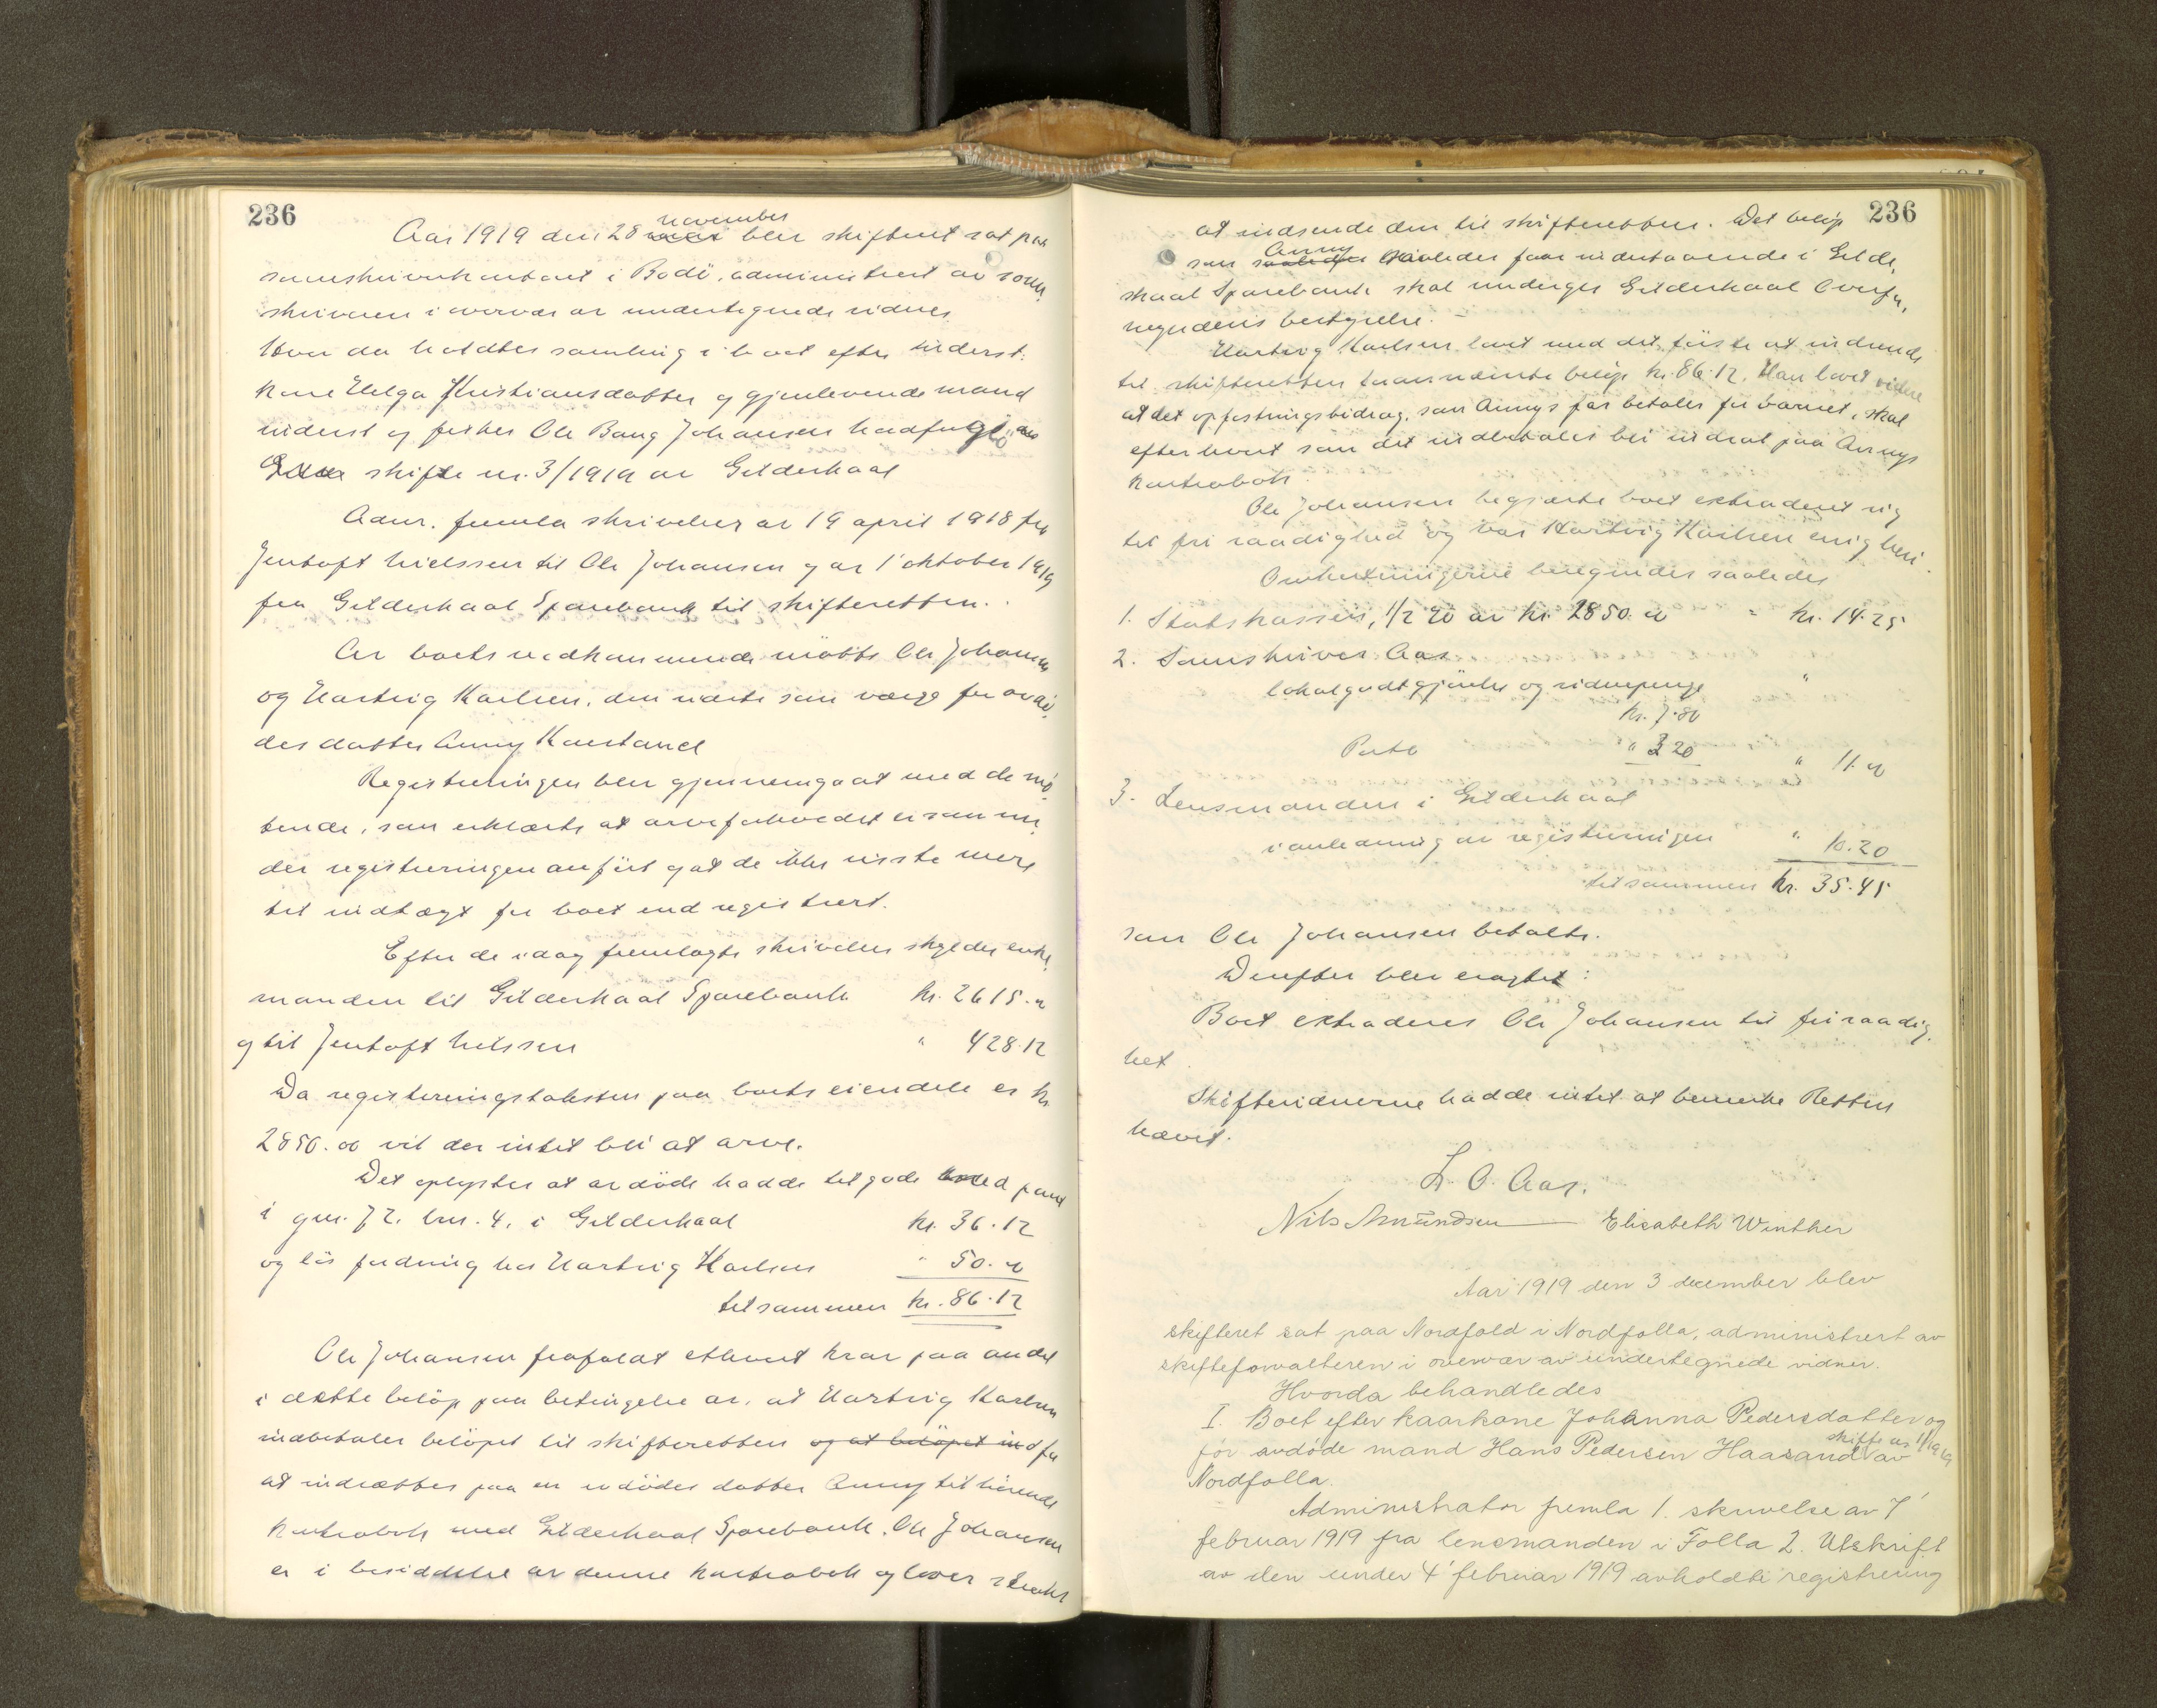 236
november
Aar 1919 den 28 blev skifteret sat paa
sorenskriverkontoret i Bodö, administrert av soren
skriveren i overvær av undertegnede vidner.
Hvor da holdtes samling i boet efter inderst-
kone Helga Kristiansdatter og gjenlevende mand
inderst og fisker Ole Bang Johansen
skifte nr. 3/1919 av Gildeskaal
Adm. fremla skrivelser av 19 april 1918 fra
Jentoft Nielssen til Ole Johansen og av 1' oktober 1919
fra Gildeskaal Sparebank til skifteretten.
Av boets vedkommende mötte Ole Johansen
og Hartvig Karlsen, den siste som værge for avdö,
des datter Anny Kaurstand
Registreringen blev gjennemgaat med de mö,
tende, som erklærte at arveforholdet er som un,
der registreringen anfört og at de ikke visste mere
til indtægt for boet end registrert.
Efter de idag fremlagte skrivelser skylder enke,
manden til Gildeskaal Sparebank kr. 2615.00
og til Jentoft Nielssen " 428.12
Da registreringstaksten paa boets eiendele er kr.
2850.00 vil der intet bli at arve.
Det oplystes at avdöde hadde tilgode med pant
i gnr. 72. brn. 4. i Gildeskaal kr. 36.12
og lös fordring hos Hartvig Karlsen " 50.00
tilsammen kr. 86.12
Ole Johansen frafaldt ethvert krav paa andel
i dette belöp paa betingelse av, at Hartvig Karlsen
indbetaler belöpet til skifteretten og at belöpet ind for
at indsættes paa en avdödes datter Anny tilhörende
kontrabok med Gildeskaal Sparebank. Ole Johansen
er i besiddelse av denne kontrabok og lover straks
236
at indsende den til skifteretten. Det belöp
Anny
som saaledes saaledes faar indestaaende i Gilde,
skaal Sparebank skal undergis Gildeskaal Overfor,
mynderis bestyrelse. -
Hartvig Karlsen lovet med det förste at indsende
til skifteretten forannævnte belöp kr. 86.12. Han lovet videre
at det opfostringsbidrag, som Annys far betaler for barnet, skal
efterhvert som det indbetales bli indsat paa Annys
kontrabok.
Ole Johansen begjærte boet extradert sig
til fri raadighed og var Hartvig Karlsen enig heri.
Omkostningerne beregnedes saaledes
1. Statskassen, 1/2 % av kr. 2850.00 = kr. 14.25
2. Sorenskriver Aas
lokalgodtgjörelse og vidnepenge "
kr. 7.80
Porto " 3.20 " 11.00
3. Lensmanden i Gildeskaal
i anledning av registreringen " 10.20
tilsammen kr. 35.45
som Ole Johansen betalte.
Derefter blev eragtet:
Boet extraderes Ole Johansen til fri raadig,
het.
Skiftevidnerne hadde intet at bemerke Retten
hævet.
L. O. Aas.
Nils Amundsen Elisabeth Winther
Aar 1919 den 3 december blev
skifteret sat paa Nordfold i Nordfolla, administrert av
skifteforvalteren i overvær av undertegnede vidner.
Hvorda behandledes
I. Boet efter kaarkone Johanna Pedersdatter og
skifte nr 1/1919
för avdöde mand Hans Pedersen Haasand av
Nordfolla.
Administrator fremla 1. skrivelse av 7'
februar 1919 fra lensmanden i Folla 2. Utskrift
av den under 4' februar 1919 avholdte registrering